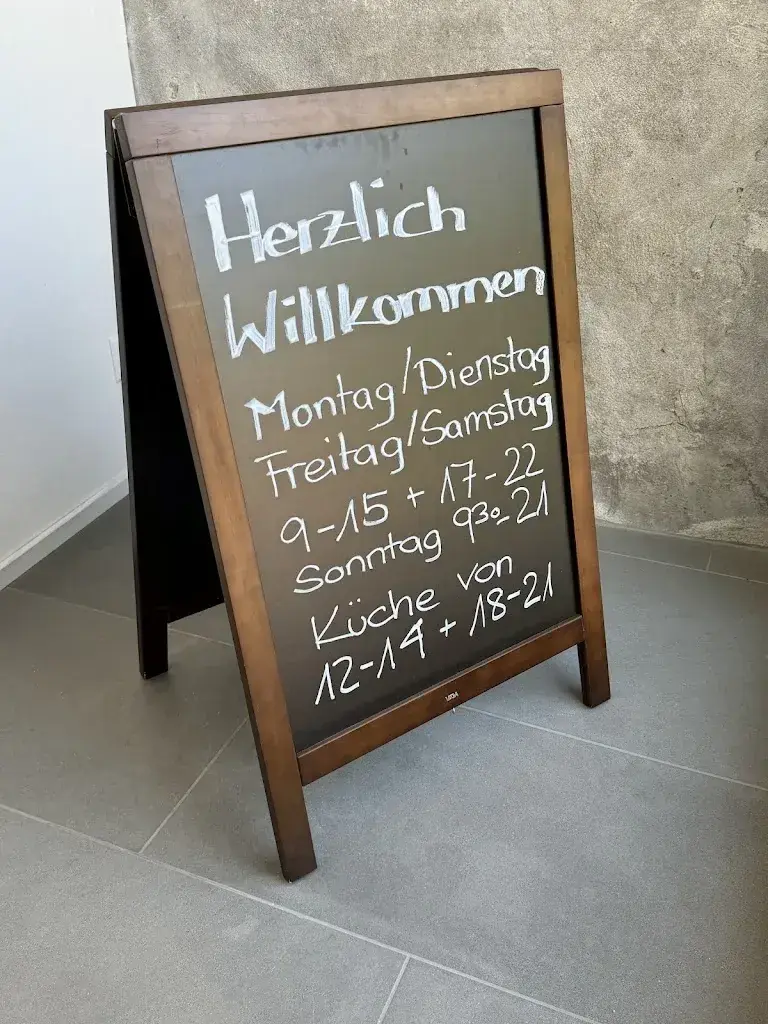 Herzlich
Willkommen
Montag/Dienstag
Freitag/Samstag
9-15 + 17-22
Sonntag 9³⁰-21
Küche von
12-14 + 18-21